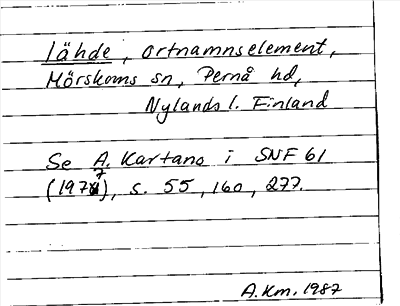 lähde, ortnamnselement,
Mörskoms sn, Pernå hd,
Nylands l. Finland
Se Å. Kartano i SNF 61
(1977), s. 55, 160, 277.
A.Km. 1987